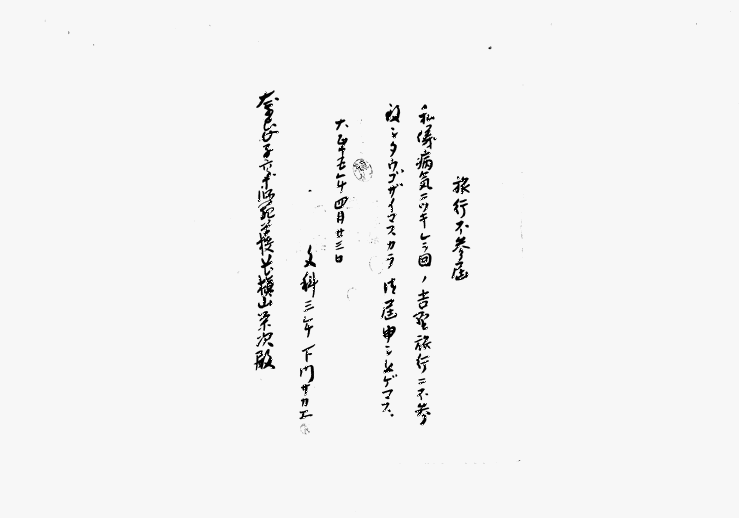 旅行不参届
私儀病気ニツキ今回ノ吉野旅行ニ不参
致シタウゴザイマスカラ此段御届申シ上ゲマス。
大正十五年四月廿三日
文科三年 下門サカエ
奈良女子高等師範学校長槇山栄次殿